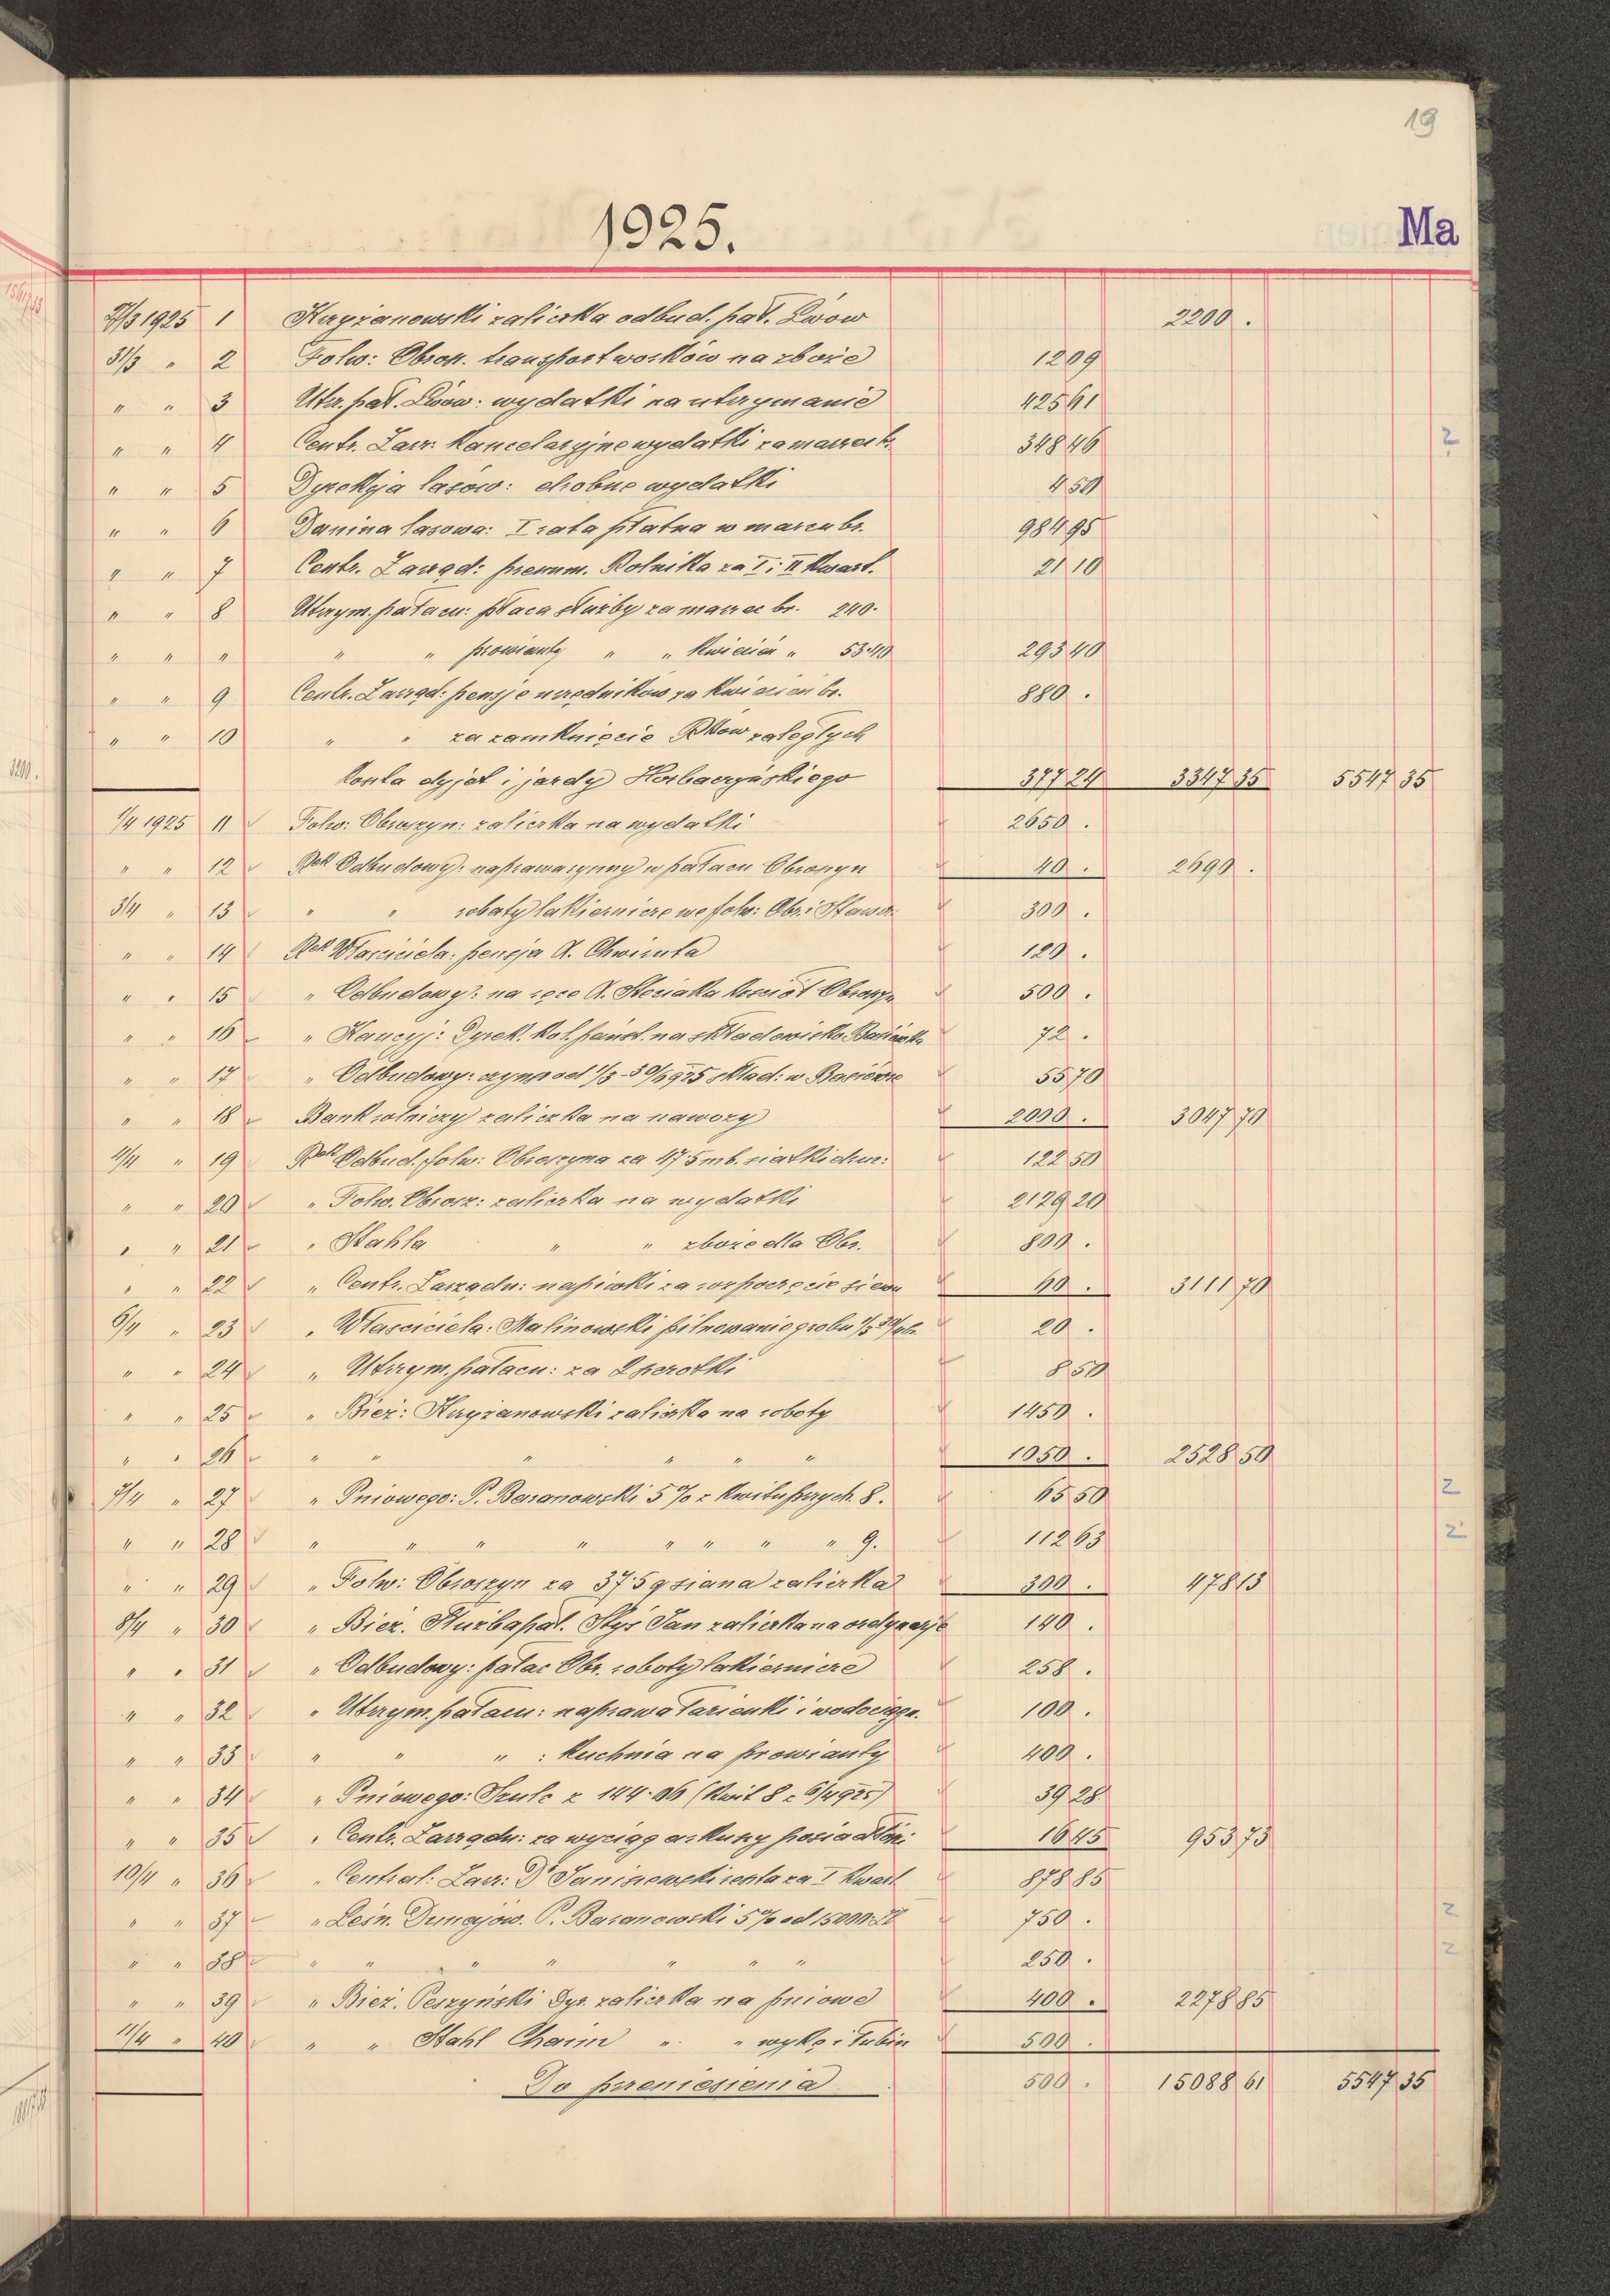 19
1925.
Ma
2/3 1925 1 Krzyżanowski zaliczka odbud. pał. Lwów 2200 .
31/3 " 2 Folw: Obrosz. transport worków na zboże 12 09
" " 3 Utrz. pał. Lwów: wydatki na utrzymanie 425 61
" " 4 Centr. Zarz. Kancelaryjne wydatki za marzec br. 348 46
" " 5 Dyrekcja lasów: drobne wydatki 4 50
" " 6 Danina lasowa: I rata płatna w marcu br. 984 95
" " 7 Centr. Zarząd: prenum. Rolnika za I i II kwart. 21 10
" " 8 Utrzym. pałacu: płaca służby za marzec br. 240.
" " " " " prowianty " " kwiecień " 53.40 293 40
" " 9 Centr. Zarząd: pensje urzędników za kwiecień br. 880 .
" " 10 " " za zamknięcie Rków zaległych
konta dyjet i jazdy Horbaczyńskiego 377 24 3347 35 5547 35
1/4 1925 11 Folw: Obroszyn: zaliczka na wydatki 2650 .
" " 12 Rek Odbudowy: naprawa rynny w pałacu Obroszyn 40 . 2690 .
3/4 " 13 " " roboty lakiernicze we folw: Obr. i Stawcz. 300 .
" " 14 Rek Właściciela: pensja A. Chwiruta 120 .
" " 15 " Odbudowy: na ręce A. Steciaka kościół Obroszyn 500 .
" " 16 " Kaucyj: Dyrek. kol. państ. na składowisko Basiówka 72 .
" " 17 " Odbudowy: czynsz od 1/3 - 30/4 925 skład: w Basiówce 55 70
" " 18 Bank rolniczy zaliczka na nawozy 2000 . 3047 70
4/4 " 19 Rek Odbud. folw: Obroszyna za 47.5 mb. siatki druc: 122 50
" " 20 " Folw. Obrosz: zaliczka na wydatki 2129 20
" " 21 " Stahla " " zboże dla Obr. 800 .
" " 22 " Centr. Zarządu: napiwki za rozpoczęcie siewu 60 . 3111 70
6/4 " 23 " Właściciela: Malinowski pilnowanie grobu 1/3 30/4 br. 20 .
" " 24 " Utrzym. pałacu: za 2 szczotki 8 50
" " 25 " Bież: Krzyżanowski zaliczka na roboty 1450 .
" " 26 " " " " " " 1050 . 2528 50
7/4 " 27 " Pniowego: P. Baranowski 5% z kwitu przych. 8. 65 50
" " 28 " " " " " " " " 9. 112 63
" " 29 " Folw: Obroszyn za 37.5 q siana zaliczka 300 . 478 13
8/4 " 30 " Bież. Służba pał. Styś Jan zaliczka na ordynarję 140 .
" " 31 " Odbudowy: pałac Obr. roboty lakiernicze 258 .
" " 32 " Utrzym. pałacu: naprawa łazienki i wodociągu. 100 .
" " 33 " " " : kuchnia na prowianty 400 .
" " 34 " Pniowego: Szulc z 144.06 (kwit 8 z 6/4 925) 39 28
" " 35 " Centr. Zarządu: za wyciąg arkuszy posiadłości 16 45 953 73
10/4 " 36 " Central: Zarz: Dr Janiszewski renta za I kwart. 878 85
" " 37 " Leśn. Dunajów. P. Baranowski 5% od 15000 Zł 750 .
" " 38 " " " " " " " 250 .
" " 39 " Bież. Peszyński Dyr. zaliczka na pniowe 400 . 2278 85
11/4 " 40 " " Stahl Chaim " " wykę i łubin 500 .
Do przeniesienia 500 . 15088 61 5547 35